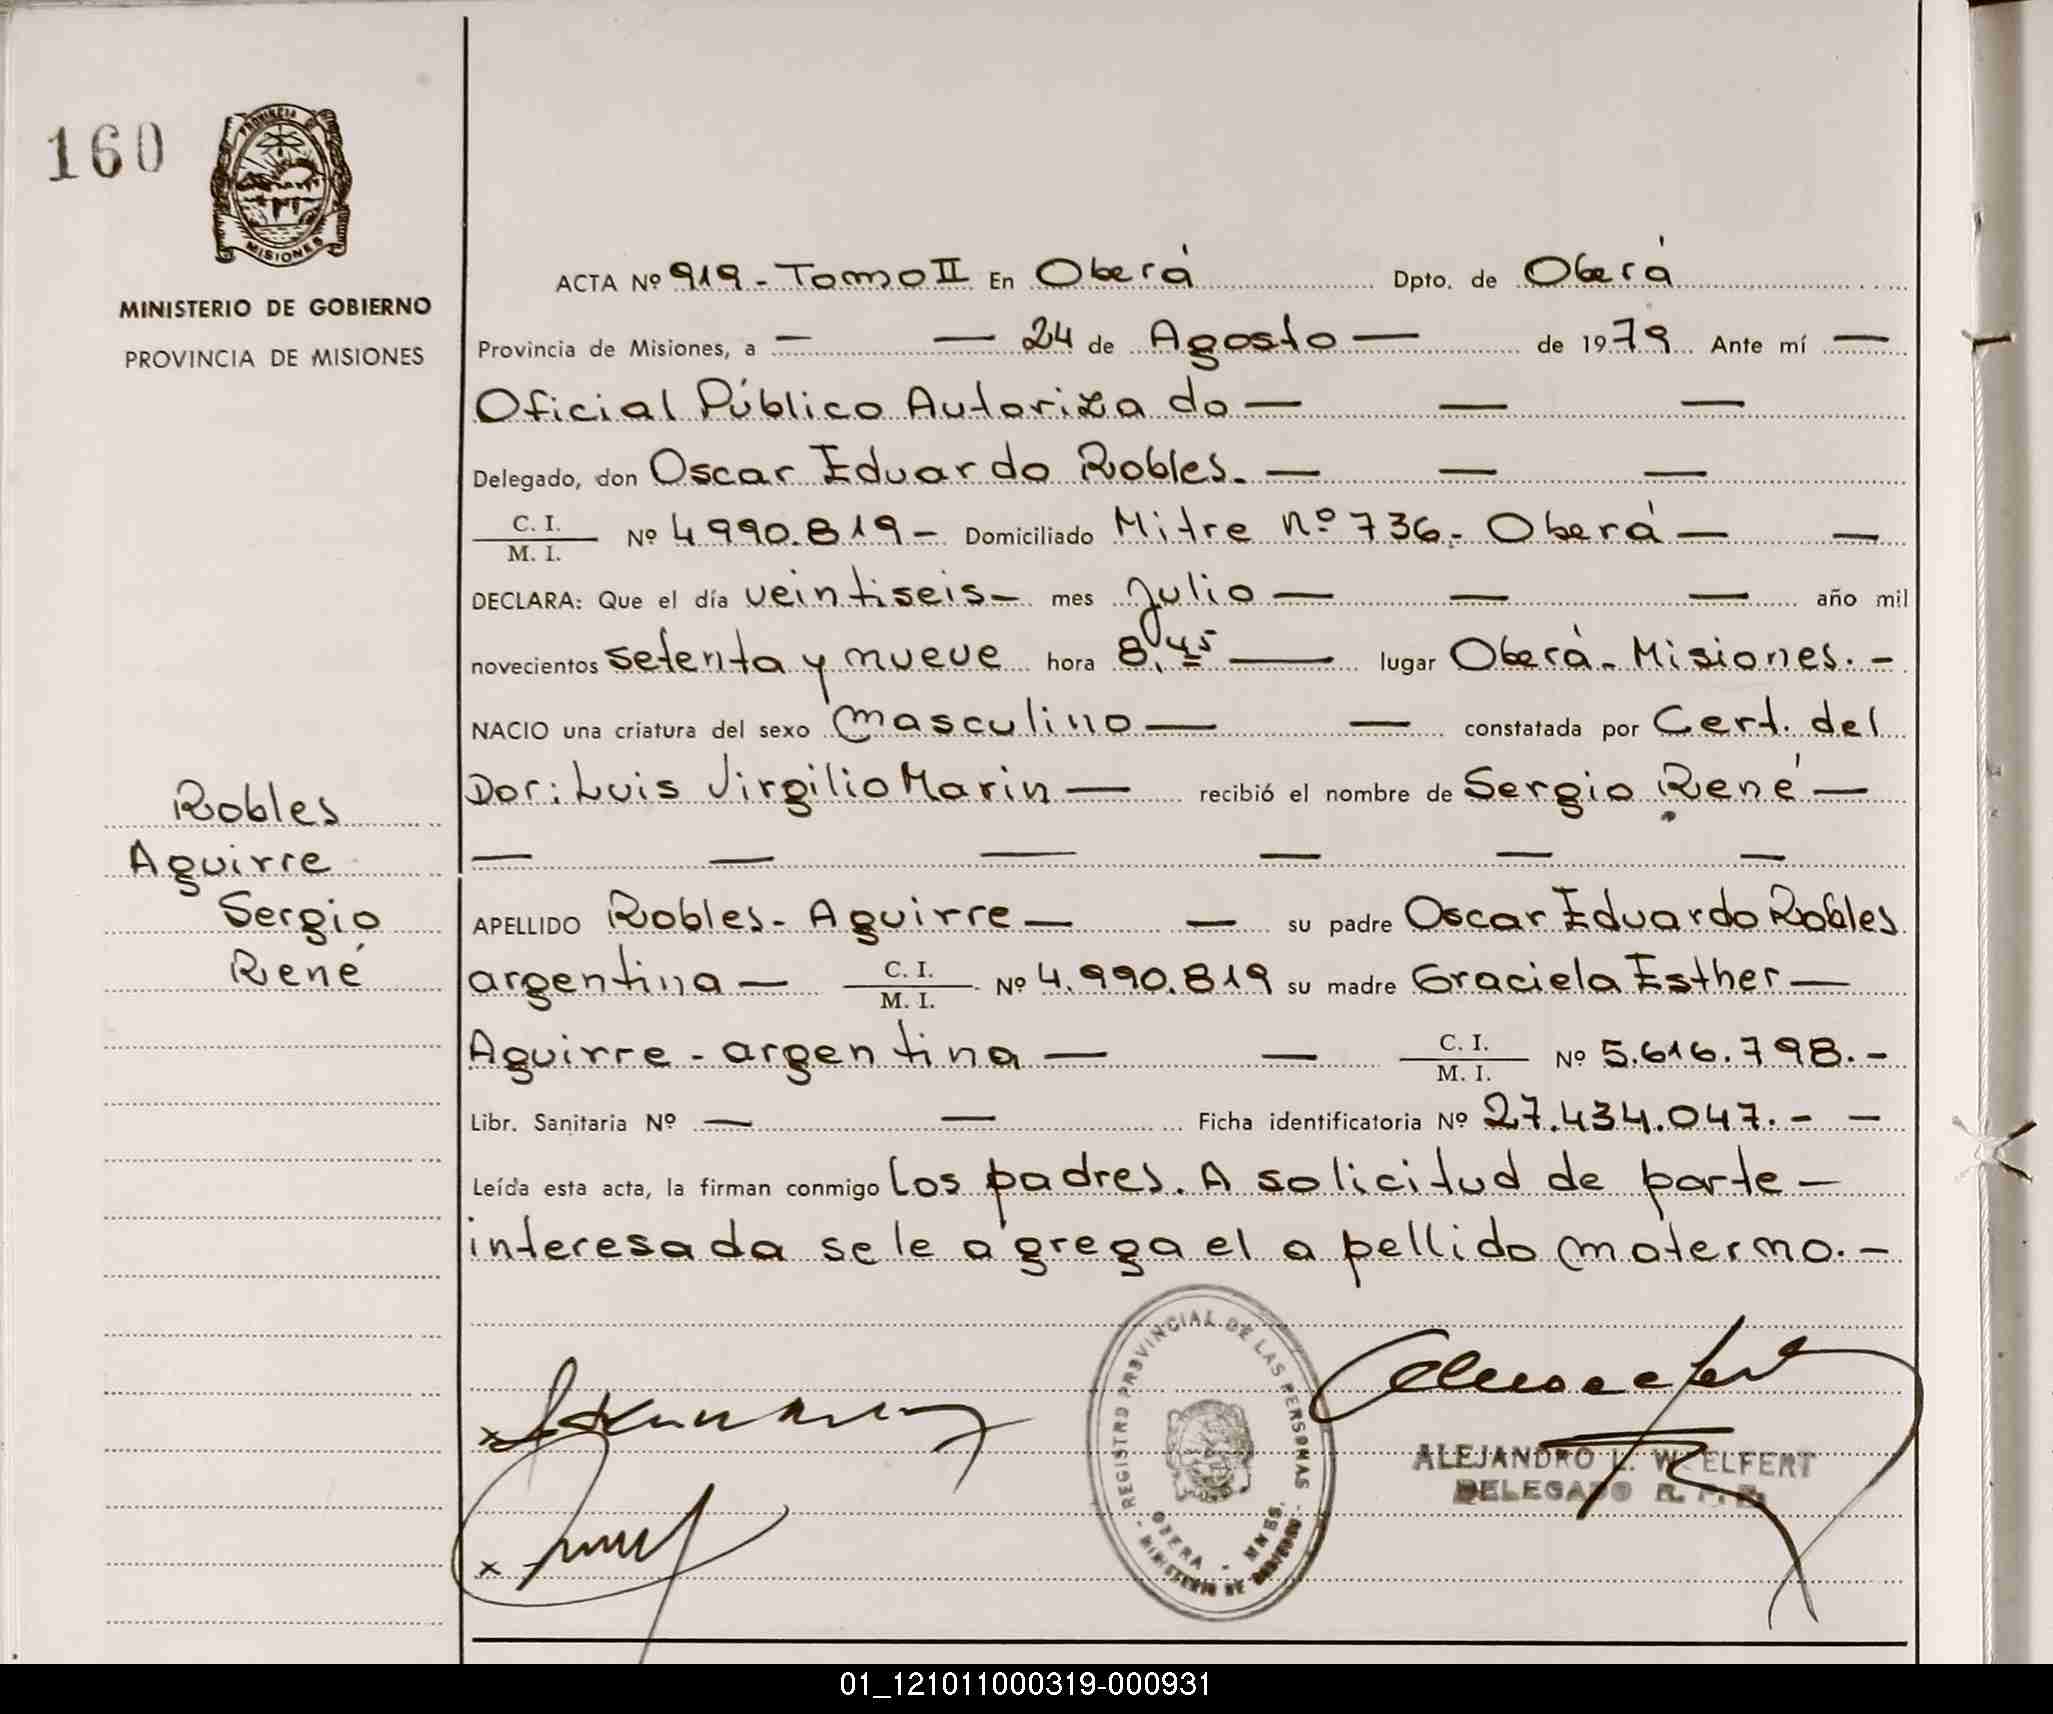 160
PROVINCIA DE
MISIONES
MINISTERIO DE GOBIERNO
PROVINCIA DE MISIONES
ACTA Nº 919 - Tomo II En Oberá Dpto. de Oberá
Provincia de Misiones, a — — 24 de Agosto — de 1979 Ante mí —
Oficial Público Autorizado — — —
Delegado, don Oscar Eduardo Robles. — — —
C. I.
M. I. Nº 4.990.819 - Domiciliado Mitre Nº 736.- Oberá — —
DECLARA: Que el día veintiseis — mes Julio — — — año mil
novecientos setenta y nueve hora 8,45 — lugar Oberá - Misiones. -
NACIO una criatura del sexo masculino — — constatada por Cert. del
Dor: Luis Virgilio Marin — recibió el nombre de Sergio René —
— — — — — —
Robles
Aguirre
Sergio
René
APELLIDO Robles - Aguirre — — su padre Oscar Eduardo Robles
argentina — C. I.
M. I. Nº 4.990.819 su madre Graciela Esther —
Aguirre - argentina — — C. I.
M. I. Nº 5.616.798. -
Libr. Sanitaria Nº — — Ficha identificatoria Nº 27.434.047. - -
Leída esta acta, la firman conmigo los padres. A solicitud de parte —
interesada se le agrega el apellido materno. -
REGISTRO PROVINCIAL DE LAS PERSONAS
OBERA - MNES.
MINISTERIO DE GOBIERNO
ALEJANDRO L. ELFERT
DELEGADO R. P. P.
x
x
01_121011000319-000931